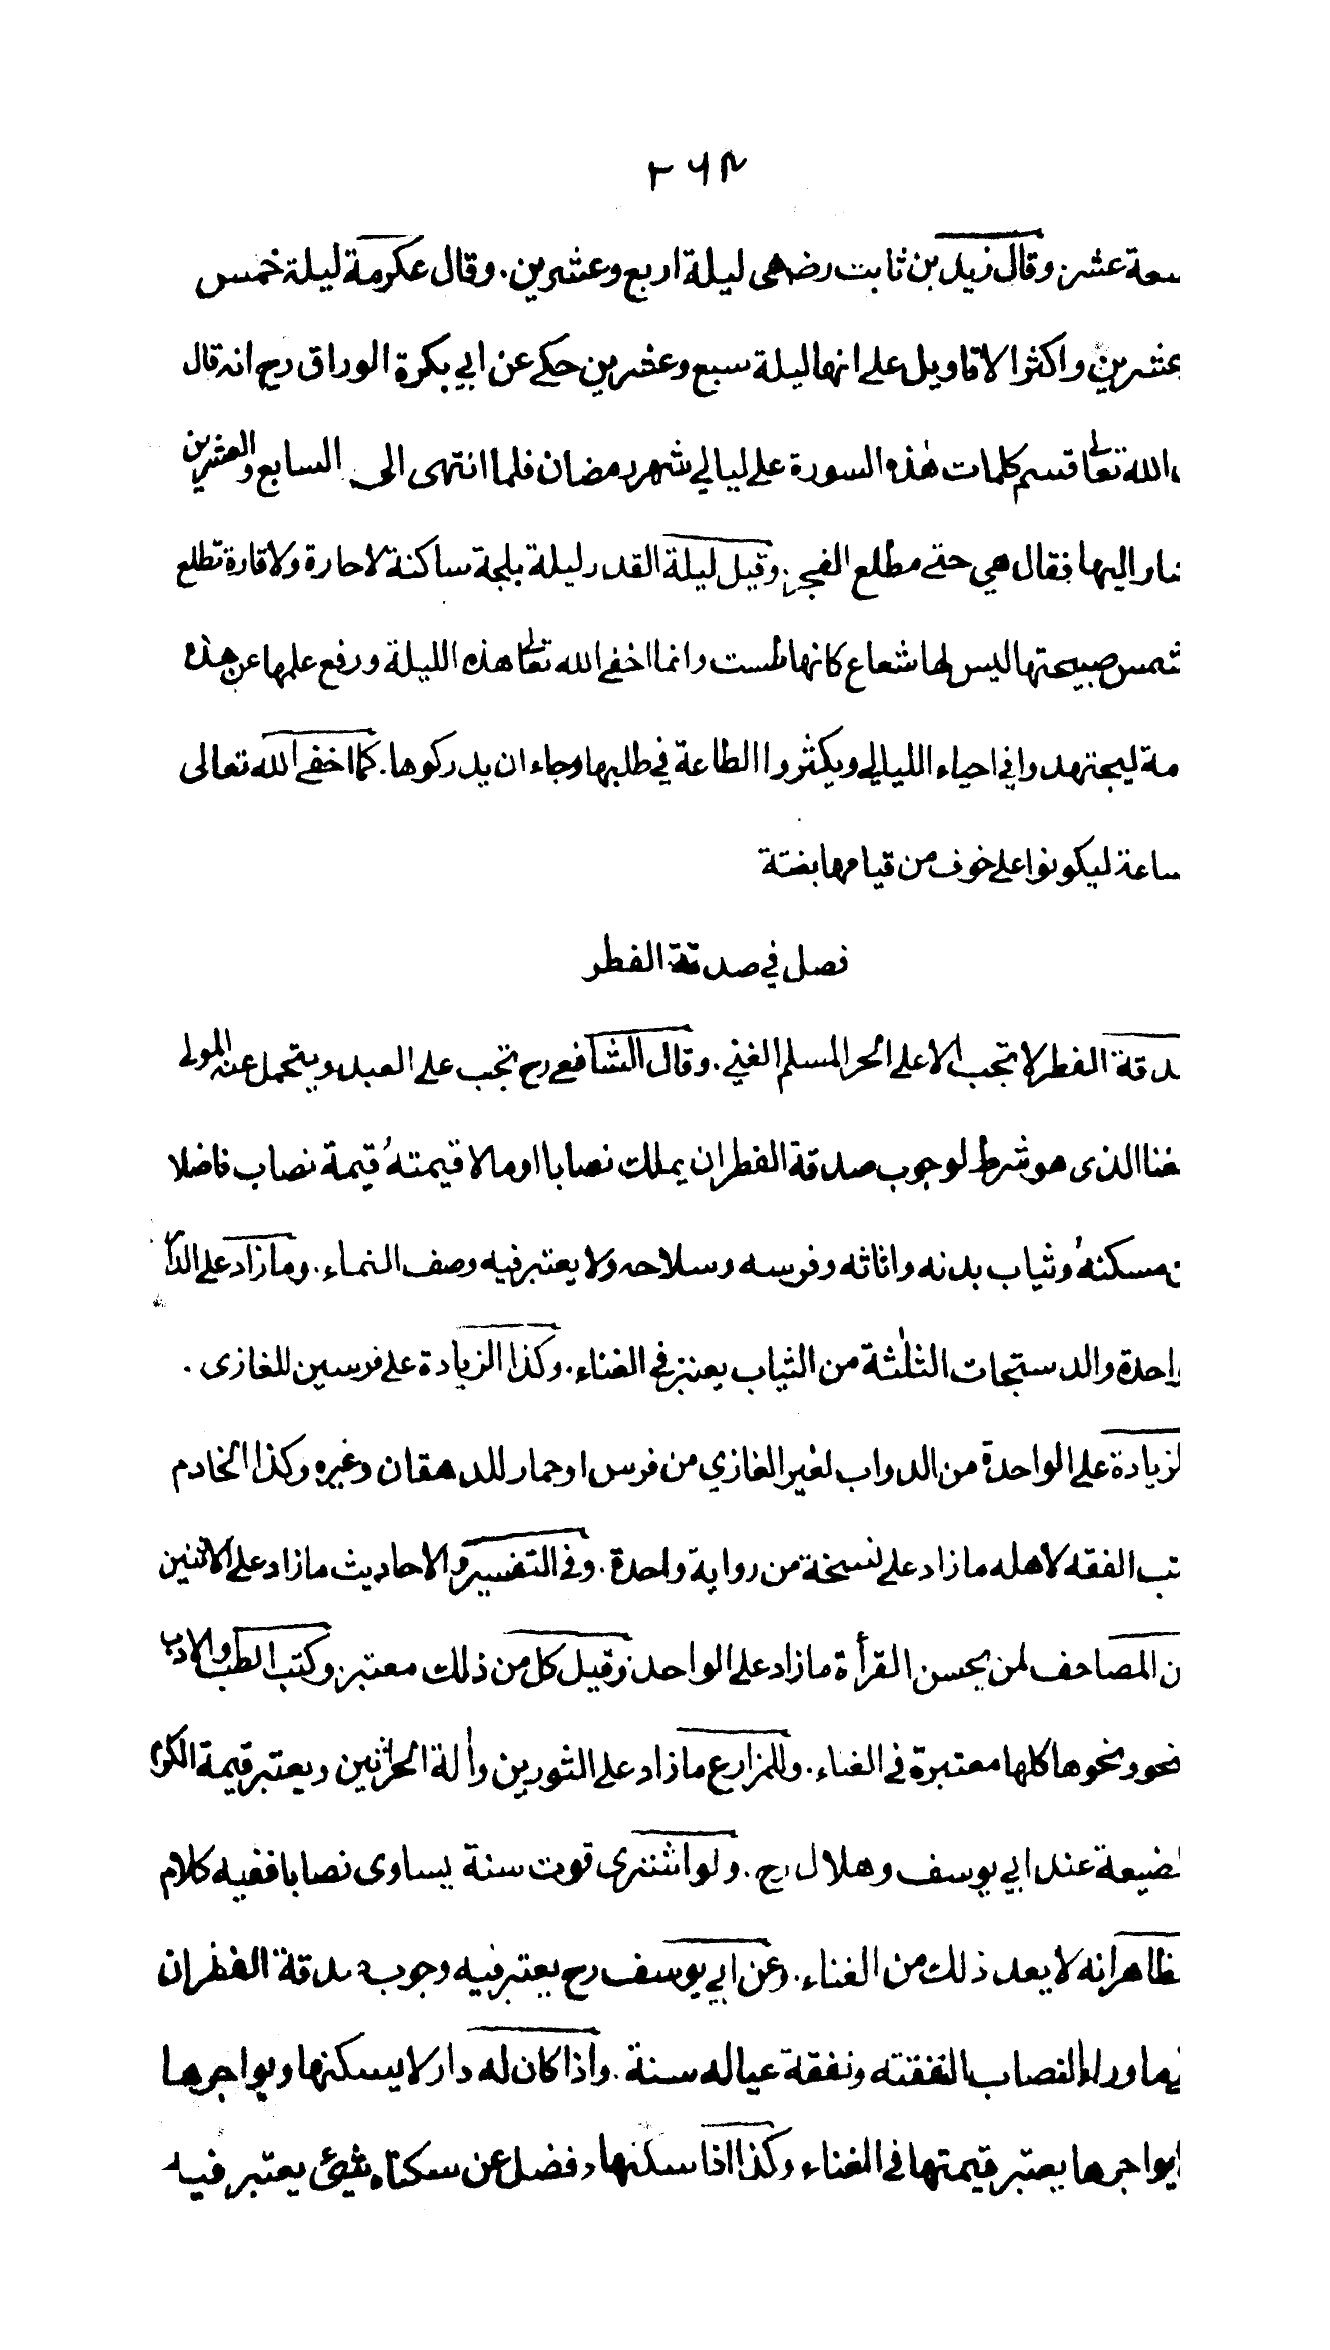 ۲۶۴
سعة عشر. وقال زيد بن ثابت رضہ هى ليلة اربع وعشرين. وقال عكرمة ليلة خمس
عشرين واكثر الاقاويل على انها ليلة سبع وعشرين حكے عن ابي بكرة الوراق رح انه قال
الله تعالٰى قسم كلمات هٰذه السورة على ليالي شهر رمضان فلما انتهى الى السابع والعشرين
شار اليها فقال هي حتے مطلع الفجر. وقيل ليلة القدر ليلة بلجة ساكنة لا حارة ولا قارة تطلع
شمس صبيحتها ليس لها شعاع كانها طست وانما اخفے الله تعالٰى هذه الليلة ورفع علمها عن هذه
مة ليجتهدوا في احياء الليالي ويكثروا الطاعة في طلبها رجاء ان يدركوها. كما اخفے الله تعالى
ساعة ليكونوا على خوف من قيامها بغتة
فصل في صدقة الفطر
دقة الفطر لا تجب الا على الحر المسلم الغني. وقال الشافعے رح تجب على العبد ويتحمل عنه المولى
لغنا الذى هو شرط لوجوب صدقة الفطر ان يملك نصابا او مالا قيمتهُ قيمة نصاب فاضلا
ن مسكنهُ وثياب بدنه واثاثه وفرسه وسلاحه ولا يعتبر فيه وصف النماء. وما زاد على الدار
واحدة والدستجات الثلٰثة من الثياب يعتبر في الغناء. وكذا الزيادة على فرسين للغازى.
لزيادة على الواحدة من الدواب لغير الغازي من فرس او حمار للدهقان وغيره وكذا الخادم
تب الفقه لاهله ما زاد على نسخة من رواية واحدة. وفى التفسير والاحاديث ما زاد على الاثنين
ن المصاحف لمن يحسن القرأة ما زاد على الواحد. وقيل كل من ذلك معتبر. وكتب الطب والادب
نحو ونحوها كلها معتبرة في الغناء. وللمزارع ما زاد على الثورين وألة الحراثين ويعتبر قيمة الكرم
لضيعة عند ابي يوسف وهلال رح. ولو اشترى قوت سنة يساوى نصابا ففيه كلام
ظاهر انه لا يعد ذلك من الغناء. وعن ابي يوسف رح يعتبر فيه وجوب دقة الفطر ان
يما وراء النصاب لنفقته ونفقة عياله سنة. واذا كان له دار لا يسكنها ويواجرها
يواجرها يعتبر قيمتها في الغناء وكذا اذا سكنها وفضل عن سكناه شيئ يعتبر فيه